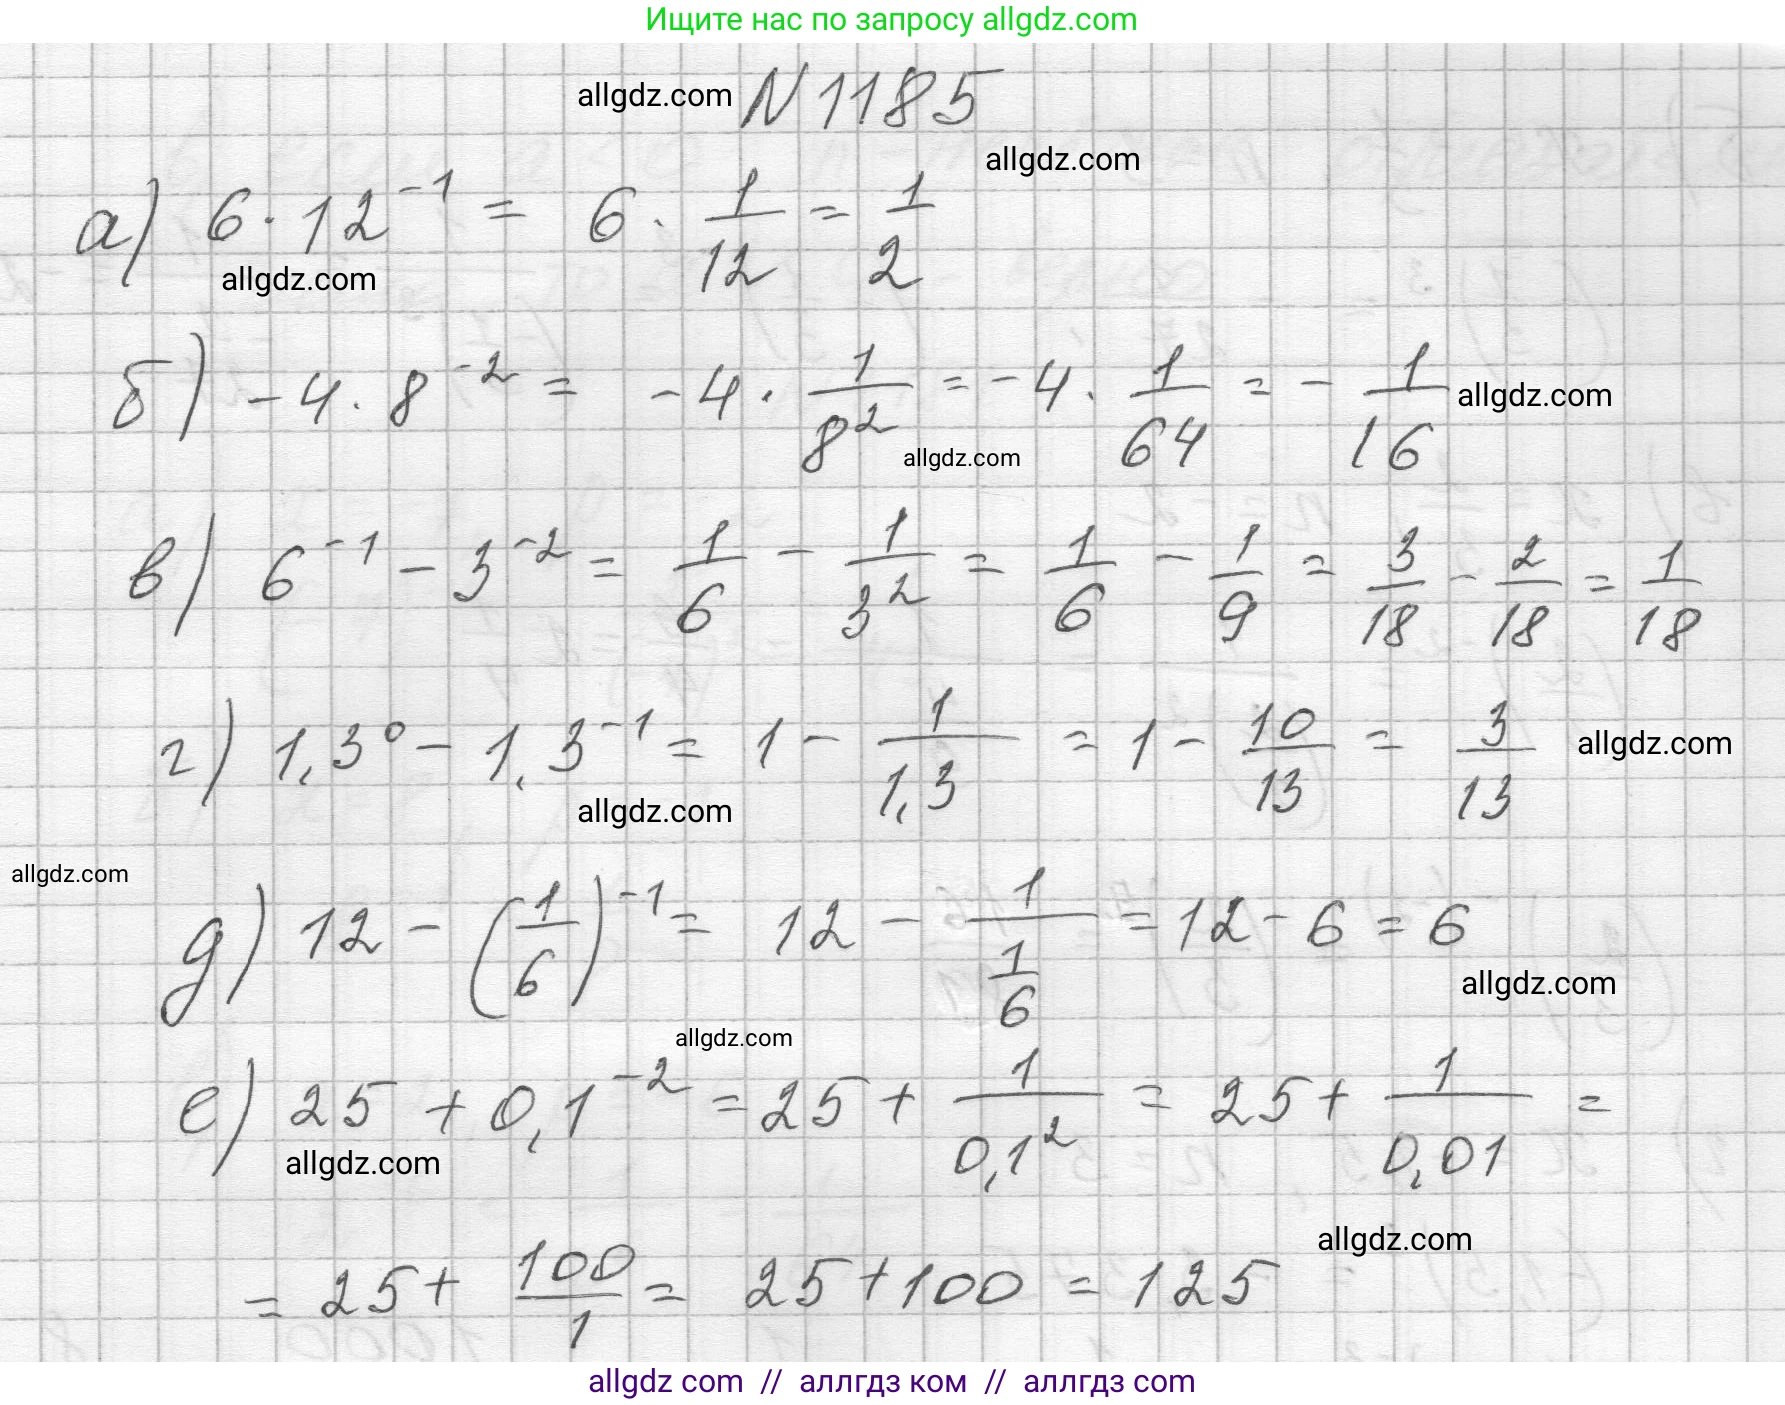 Ищите нас по запросу allgdz.com
allgdz.com N 1185
allgdz.com
а) 6 · 12^{-1} = 6 · 1/12 = 1/2
allgdz.com
б) -4 · 8^{-2} = -4 · 1/8^2 = -4 · 1/64 = - 1/16 allgdz.com
allgdz.com
в) 6^{-1} - 3^{-2} = 1/6 - 1/3^2 = 1/6 - 1/9 = 3/18 - 2/18 = 1/18
г) 1,3^0 - 1,3^{-1} = 1 - 1/1,3 = 1 - 10/13 = 3/13 allgdz.com
allgdz.com
allgdz.com
д) 12 - (1/6)^{-1} = 12 - 1/(1/6) = 12 - 6 = 6
allgdz.com
allgdz.com
е) 25 + 0,1^{-2} = 25 + 1/0,1^2 = 25 + 1/0,01 =
allgdz.com
allgdz.com
= 25 + 100/1 = 25 + 100 = 125
allgdz com // аллгдз ком // аллгдз com